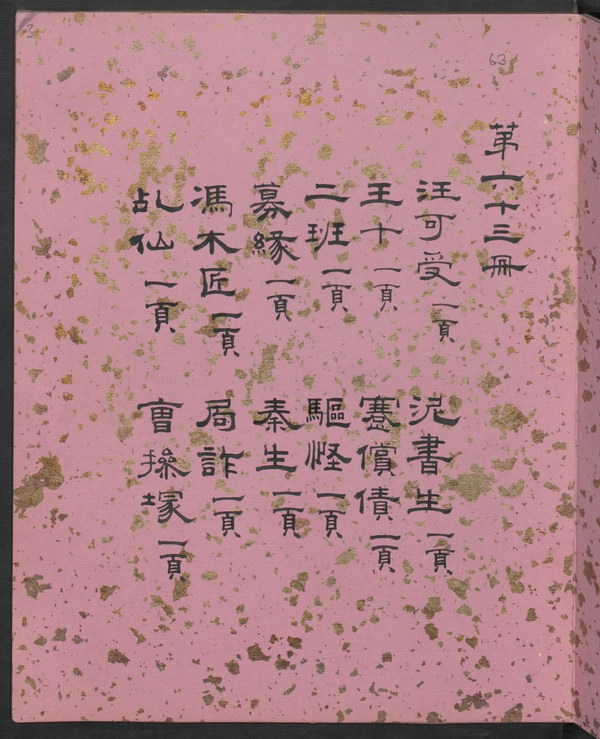 63
第六十三冊
汪可受一頁
泥書生一頁
王十一頁
蹇償債一頁
二班一頁
驅怪一頁
募緣一頁
秦生一頁
馮木匠一頁
局詐一頁
乩仙一頁
曹操塚一頁